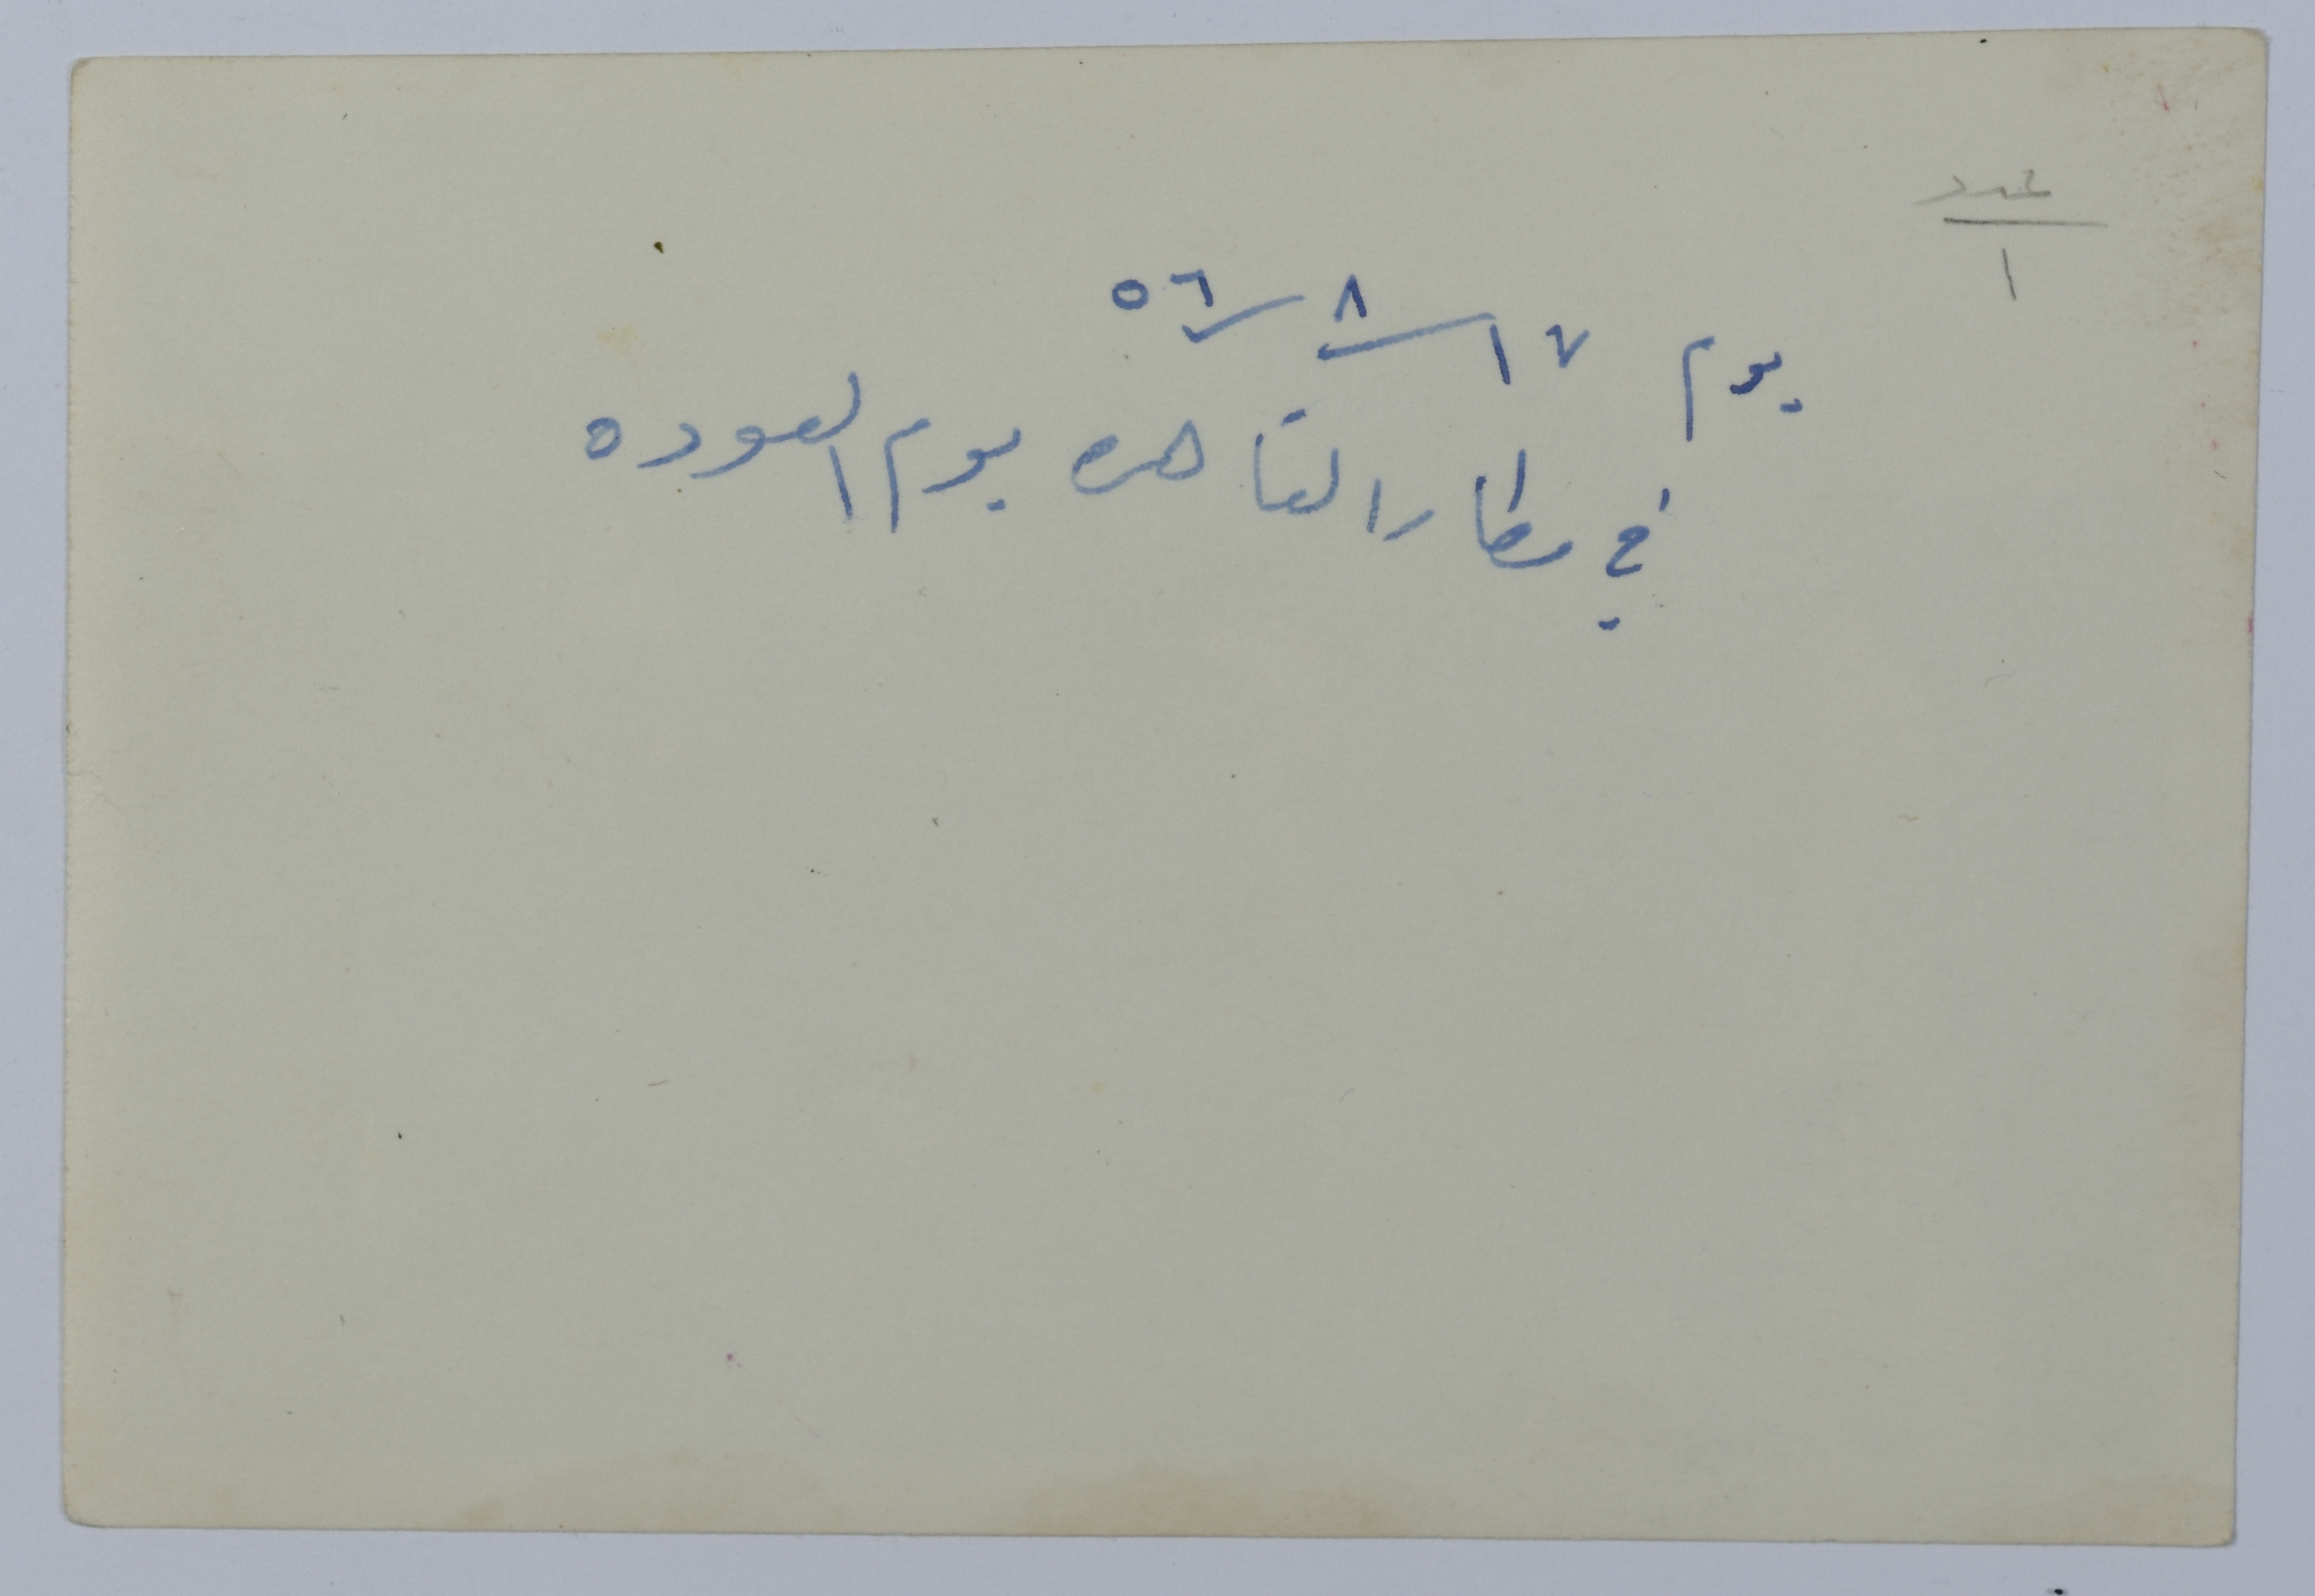 عدد
١
يوم ١٧/٨/٥٦
في مطار القاهره يوم العوده